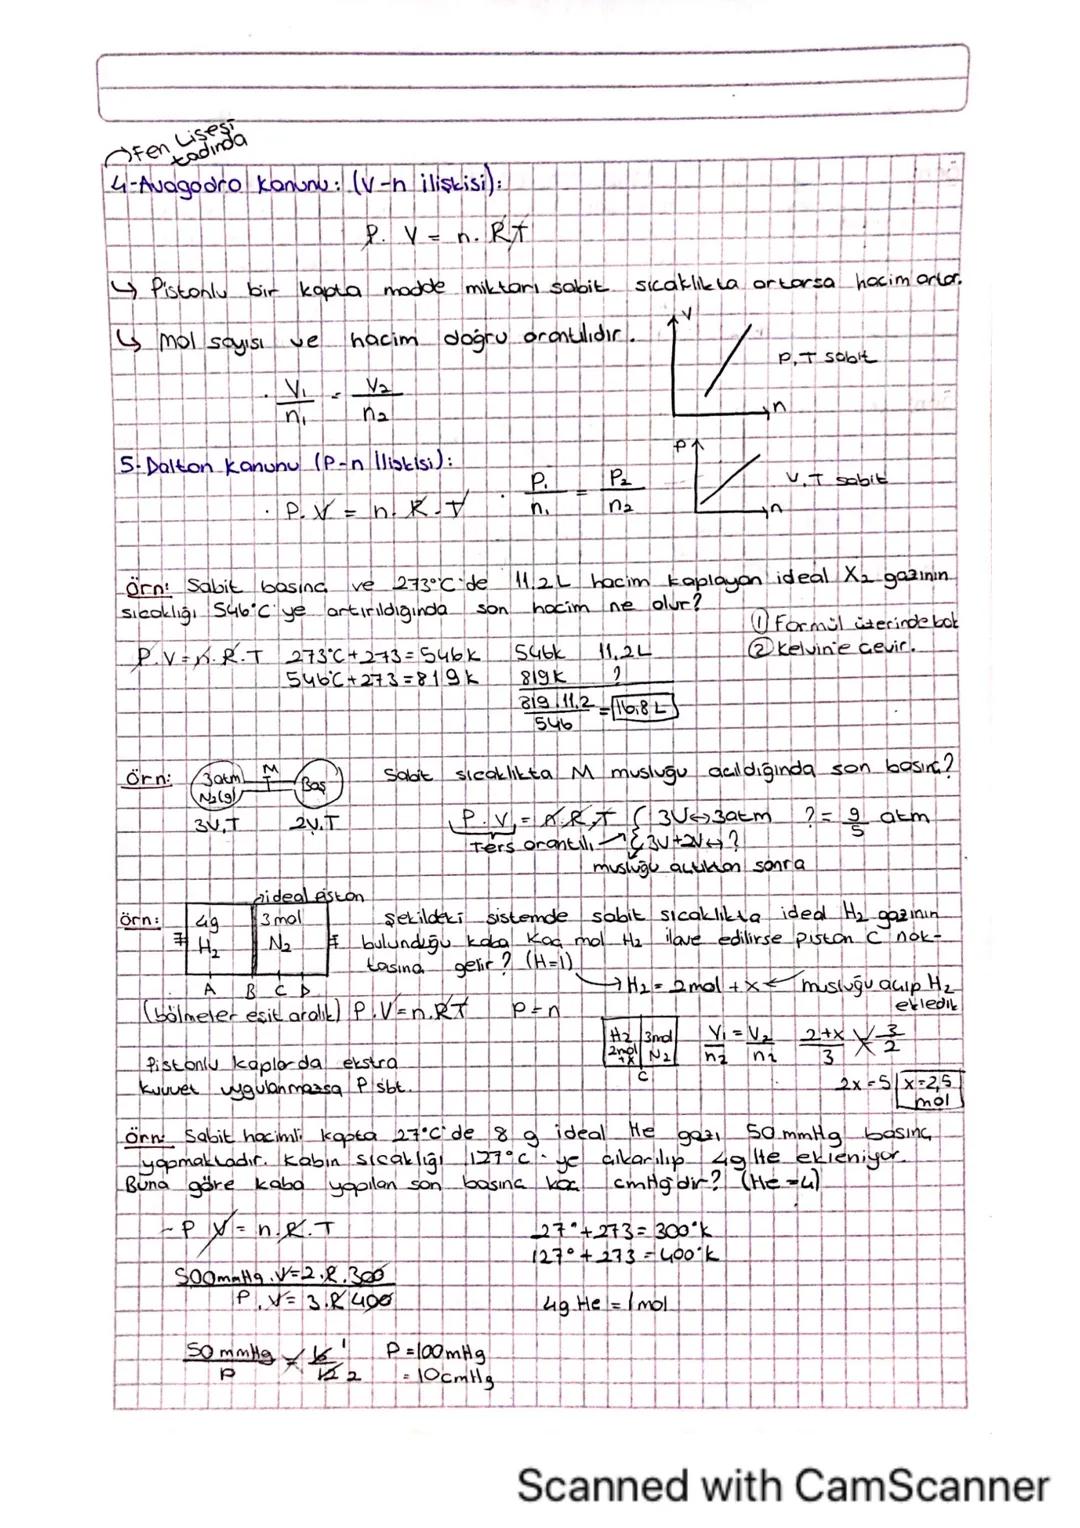 Fen Lisesi
tadında
4-Avagodro Kanunu: (V-n ilişkisi):
P. V = n. RT
↳ Pistonlu bir kapta madde miktarı sabit sıcaklıkta artarsa hacim artar.
↳ Mol sayısı ve hacim doğru orantılıdır.
V
P,T sabit
n
V₁/n₁ = V₂/n₂
5-Dalton Kanunu (P-n İlişkisi):
P. V = n. R. T
P₁/n₁ = P₂/n₂
P
V,T sabit
n
Örn: Sabit basınç ve 273°C'de 11.2L hacim kaplayan ideal X₂ gazının
sıcaklığı 546°C'ye artırıldığında son hacim ne olur?
① Formül üzerinde bak
② Kelvin'e çevir.
P.V=n.R.T 273°C+273=546K 546K 11,2L
546°C+273=819K 819K ?
819.11,2/546 = 16,8L
Örn: 3atm N₂(g) M Boş Sabit sıcaklıkta M musluğu açıldığında son basınç?
3V,T 2V,T
P.V = n.R.T { 3V↔3atm ?= 9/5 atm
Ters orantılı { 3V+2V↔?
musluğu açtıktan sonra
ideal piston
Örn: 4g H₂ 3mol N₂ Şekildeki sistemde sabit sıcaklıkta ideal H₂ gazının
bulunduğu kaba kaç mol H₂ ilave edilirse piston C nok-
tasına gelir? (H=1)
A B C D
→H₂=2mol+x← musluğu açıp H₂
ekledik
(bölmeler eşit aralık) P.V=n.RT P=n
H2 2mol +x 3mol N₂
C
V₁/n₂ = V₂/n₂ 2+x/3 3/2
Pistonlu kaplarda ekstra
kuvvet uygulanmazsa P sbt.
2x=5 x=2,5 mol
Örn: Sabit hacimli kapta 27°C'de 8 g ideal He gazı 50 mmHg basınç
yapmaktadır. Kabın sıcaklığı 127°C'ye çıkarılıp 4g He ekleniyor.
Buna göre kaba yapılan son basınç kaç cmHg'dir? (He=4)
- P V = n.R.T
27°+273=300°K
127°+273=400°K
500mmHg.V=2.R.300
P.V=3.R400
4g He = 1mol
50 mmHg/P = 6/12 1 2
P=100mHg
=10cmHg
Scanned with CamScanner